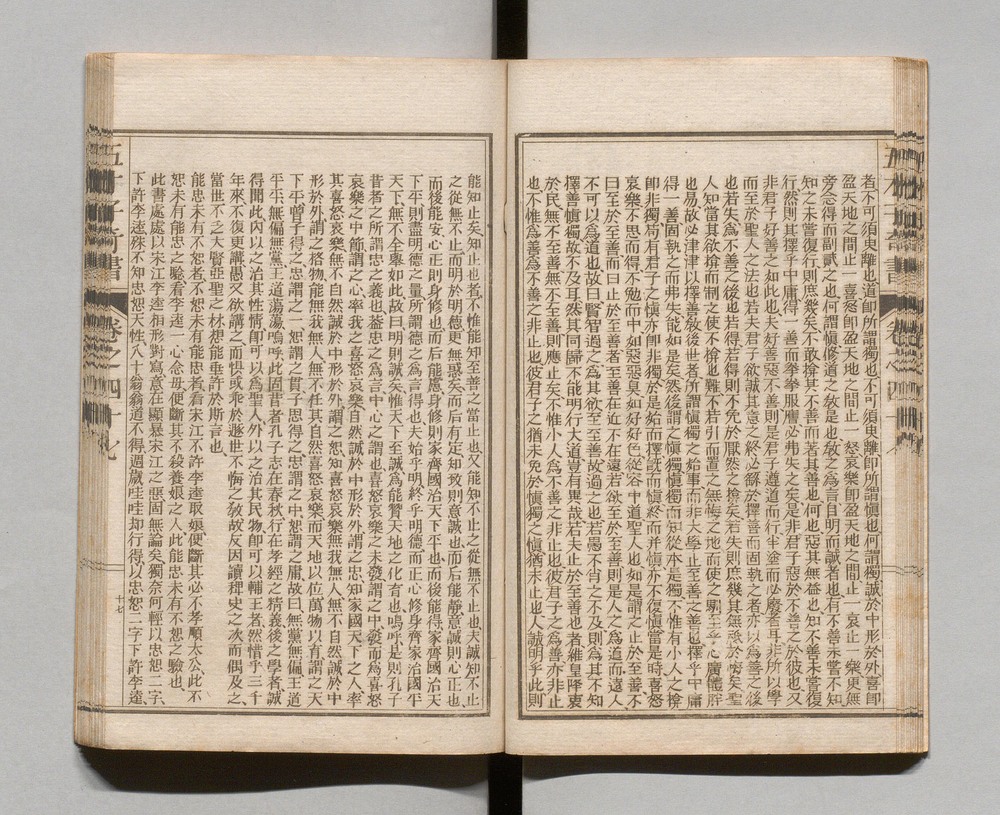 者不可須臾離也道即所謂獨也不可須臾離即所謂愼也何謂獨誠於中形於外喜即
盈天地之間止一喜怒即盈天地之間止一怒哀樂即盈天地之間止一哀止一樂更無
旁念得而副貳之也何謂愼修道之敎是也敎之爲言自明而誠者也有不善未嘗不知
知之未嘗復行則庶幾矣不敢揜其不善而著其善也何也惡其無益也知不善未嘗復
行然則其擇乎中庸得一善而拳拳服膺必弗失之矣是非君子惡於不善之於彼也又
非君子好善之如此也夫好善惡不善則是君子遵道而行半塗而必廢者耳非所以學
而至於聖人之法也若夫君子欲誠其意之終必繇於擇善而固執之者亦以爲善之後
也若失爲不善之後也若得若得則不免於厭然之揜矣若失則庶幾其無祗於悔矣聖
人知當其欲揜而制之使不揜也難不若引而置之無悔之地而使之馴至乎心廣體胖
也易故必津津以擇善敎後世者所謂愼獨之始事而非大學止至善之善也擇乎中庸
得一善固執之而弗失能如是矣然後謂之愼獨愼獨而知從本是獨不惟有小人之揜
即非獨苟有君子之愼亦即非獨於是始而擇旣而愼終而并愼亦不復愼當是時喜怒
哀樂不思而得不勉而中如惡惡臭如好好色從容中道聖人也如是謂之止於至善不
曰至於至善而曰止於至善者至善在近不在遠若欲至於至善則是人之爲道而遠人
不可以爲道也故曰賢智過之爲其欲至至善故過之也若愚不肖之不及則爲其不知
擇善愼獨故不及耳然其同歸不能明行大道豈有異哉若夫止於至善也者維皇降衷
於民無不至善無不至善則應止矣不惟小人爲不善之非止也彼君子之爲善亦非止
也不惟爲善爲不善之非止也彼君子之猶未免於愼獨之愼猶未止也人誠明乎此則
能知止矣知止也者不惟能知至善之當止也又能知不止之從無不止也夫誠知不止
之從無不止而明於明德更無惑矣而后有定知致則意誠也而后能靜意誠則心正也
而後能安心正則身修也而后能慮身修則家齊國治天下平也而後能得家齊國治天
下平則盡明德之量所謂德之爲言得也夫始乎明終乎明德而正心修身齊家治國平
天下無不全擧如此故曰明則誠矣惟天下至誠爲能贊天地之化育也嗚呼是則孔子
昔者之所謂忠之義也蓋忠之爲言中心之謂也喜怒哀樂之未發謂之中發而爲喜怒
哀樂之中節謂之心率我之喜怒哀樂自然誠於中形於外謂之忠知家國天下之人率
其喜怒哀樂無不自然誠於中形於外謂之恕知喜怒哀樂無我無人無不自然誠於中
形於外謂之格物能無我無人無不任其自然喜怒哀樂而天地以位萬物以育謂之天
下平曾子得之忠謂之一恕謂之貫子思得之忠謂之中恕謂之庸故曰無黨無偏王道
平平無偏無黨王道蕩蕩嗚呼此固昔者孔子志在春秋行在孝經之精義後之學者誠
得聞此內以之治其性情即可以爲聖人外以之治其民物即可以輔王者然惜乎三千
年來不復更講愚又欲講之而懼或乖於遯世不悔之敎故反因讀稗史之次而偶及之
當世不乏大賢亞聖之材想能垂許於斯言也
能忠未有不恕者不恕未有能忠者看宋江不許李逵取娘便斷其必不孝順太公此不
恕未有能忠之驗看李逵一心念母便斷其不殺養娘之人此能忠未有不恕之驗也
此書處處以宋江李逵相形對寫意在顯暴宋江之惡固無論矣獨奈何輕以忠恕二字
下許李逵殊不知忠恕天性八十翁翁道不得週歲哇哇却行得以忠恕二字下許李逵
五才子奇書
卷之四十七
十七